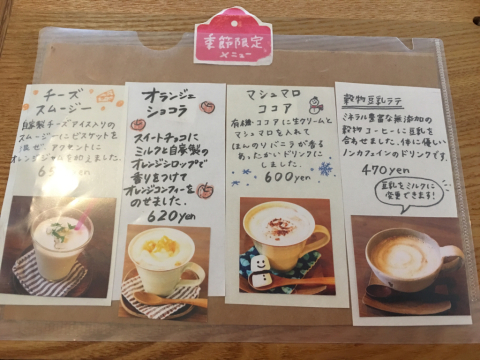 季節限定
メニュー
チーズ
スムージー
自家製チーズアイス入りの
スムージーにビスケットを
アクセントに
オレンジジャムを加えました。
オランジェ
ショコラ
スイートチョコに
ミルクと自家製の
オレンジシロップで
香りをつけて
オレンジコンフィーを
のせました。
620yen
マシュマロ
ココア
有機ココアに生クリームと
マシュマロを入れて
ほんのりバニラが香る
あったかいドリンクに
しました。
600yen
穀物豆乳ラテ
ミネラル豊富な無添加の
穀物コーヒーに豆乳を
合わせました。体に優しい
ノンカフェインのドリンクです。
470yen
豆乳をミルクに
変更できます!